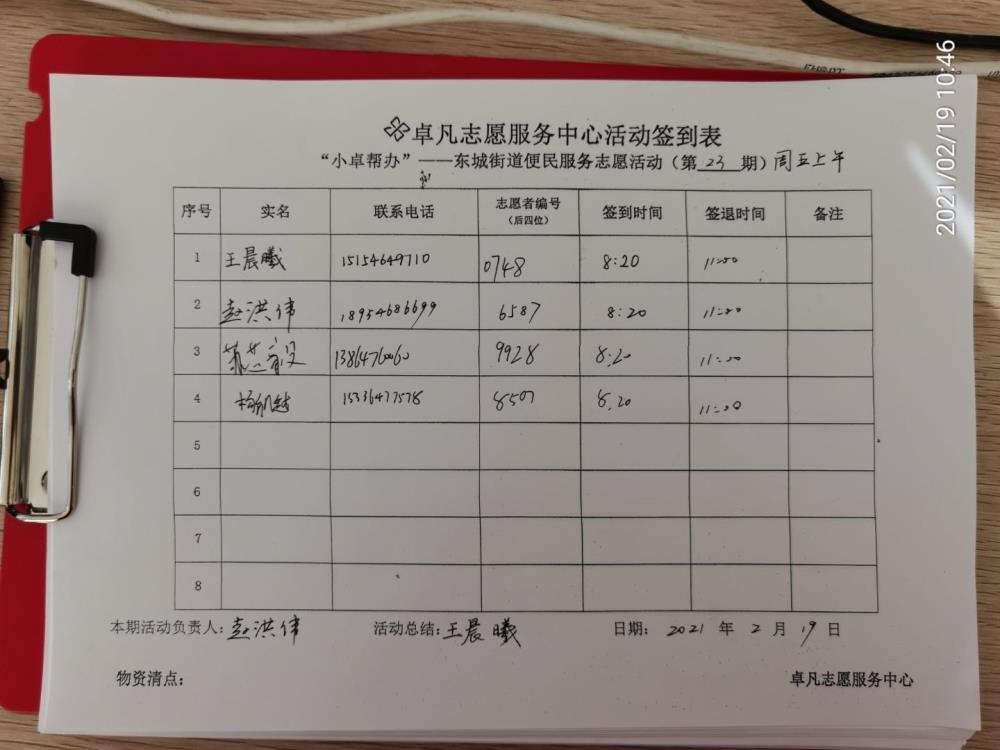 2021/02/19 10:46
卓凡志愿服务中心活动签到表
“小卓帮办”——东城街道便民服务志愿活动（第 23 期）周五上午
序号 实名 联系电话 志愿者编号（后四位） 签到时间 签退时间 备注
1 王晨曦 15154649710 0748 8:20 11:00
2 赵洪伟 18954686699 6587 8:20 11:00
3 9928 8:20 11:00
4 15336477578 8507 8:20 11:00
5
6
7
8
本期活动负责人：赵洪伟 活动总结：王晨曦 日期： 2021 年 2 月 19 日
物资清点： 卓凡志愿服务中心